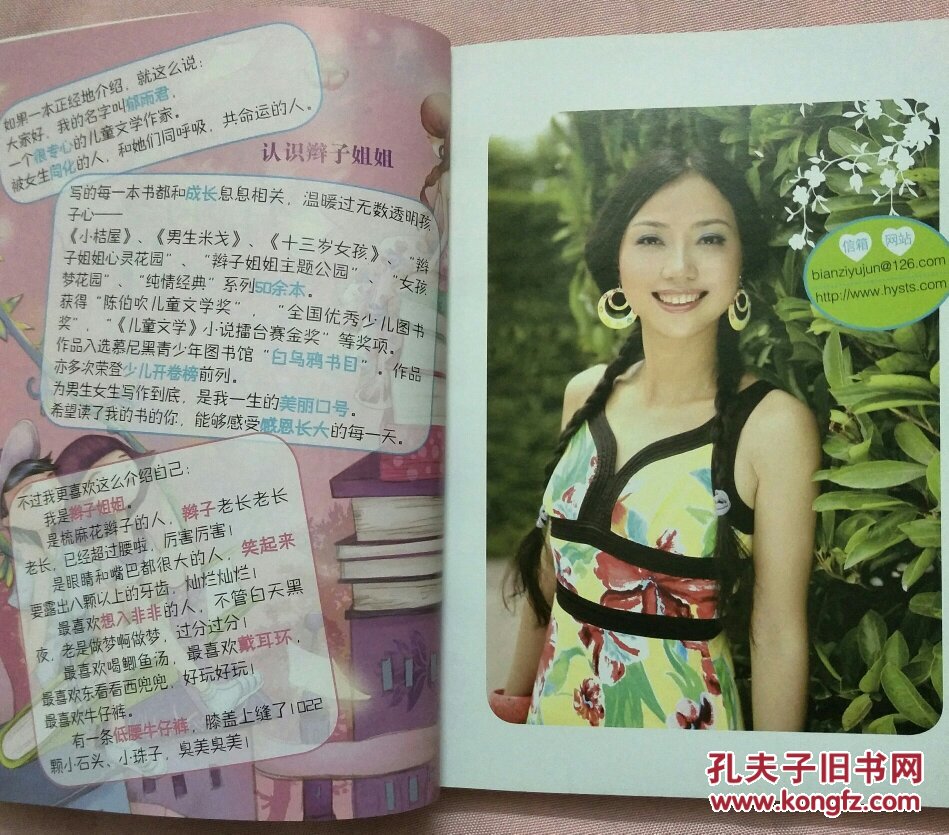 如果一本正经地介绍，就这么说：
大家好，我的名字叫郁雨君，
一个很专心的儿童文学作家。
被女生同化的人，和她们同呼吸，共命运的人。
认识辫子姐姐
写的每一本书都和成长息息相关，温暖过无数透明孩
子心——
《小桔屋》、《男生米戈》、《十三岁女孩》、“辫
子姐姐心灵花园”、“辫子姐姐主题公园”、“女孩
梦花园”、“纯情经典”系列50余本。
获得“陈伯吹儿童文学奖”，“全国优秀少儿图书
奖”，“《儿童文学》小说擂台赛金奖”等奖项。
作品入选慕尼黑青少年图书馆“白乌鸦书目”。作品
亦多次荣登少儿开卷榜前列。
为男生女生写作到底，是我一生的美丽口号。
希望读了我的书的你，能够感受感恩长大的每一天。
不过我更喜欢这么介绍自己：
我是辫子姐姐。
是梳麻花辫子的人，辫子老长老长
老长，已经超过腰啦，厉害厉害！
是眼睛和嘴巴都很大的人，笑起来
要露出八颗以上的牙齿，灿烂灿烂！
最喜欢想入非非的人，不管白天黑
夜，老是做梦啊做梦，过分过分！
最喜欢喝鲫鱼汤，最喜欢戴耳环，
最喜欢东看看西兜兜，好玩好玩！
最喜欢牛仔裤。
有一条低腰牛仔裤，膝盖上缝了1022
颗小石头、小珠子，臭美臭美！
信箱 网站
bianziyujun@126.com
http://www.hysts.com
孔夫子旧书网
www.kongfz.com